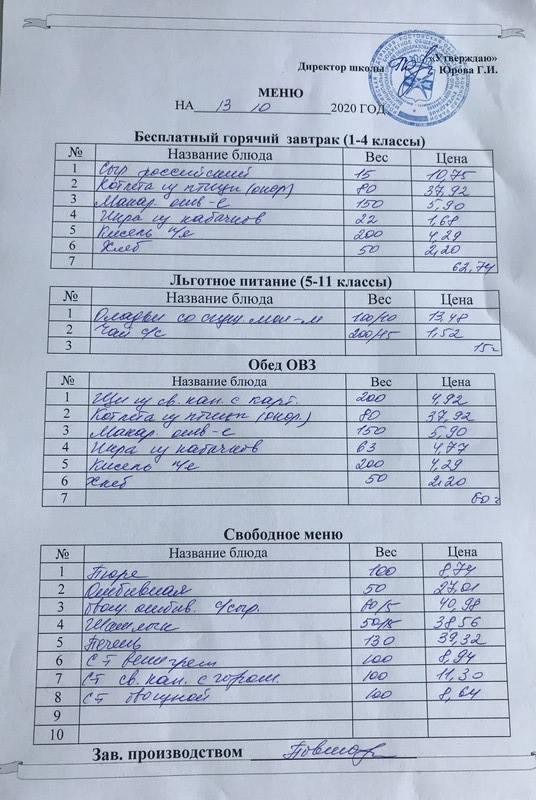 «Утверждаю»
Директор школы Юрова Г.И.
МЕНЮ
НА 13 10 2020 ГОД
Бесплатный горячий завтрак (1-4 классы)
№ Название блюда Вес Цена
1 Сыр российский 15 10,75
2 Котлета из птицы (окор) 80 37,92
3 Макар. отв-е 150 5,90
4 Икра из кабачков 22 1,68
5 Кисель 200 4,29
6 Хлеб 50 2,20
7 62,74
Льготное питание (5-11 классы)
№ Название блюда Вес Цена
1 Оладьи со сгущ. мол-м 100/10 13,48
2 Чай с/с 200/15 1,52
3 15=
Обед ОВЗ
№ Название блюда Вес Цена
1 Щи из св. кап. с карт. 200 4,92
2 Котлета из птицы (окор.) 80 37,92
3 Макар. отв-е 150 5,90
4 Икра из кабачков 63 4,77
5 Кисель 200 4,29
6 Хлеб 50 2,20
7 60=
Свободное меню
№ Название блюда Вес Цена
1 Пюре 100 8,74
2 Отбивная 50 27,01
3 отбив. с/сыр. 60/5 40,98
4 Шашлык 50/15 38,56
5 Печень 130 39,32
6 СТ винегрет 100 8,94
7 СТ св. кап. с горош. 100 11,30
8 СТ овощной 100 8,64
9
10
Зав. производством